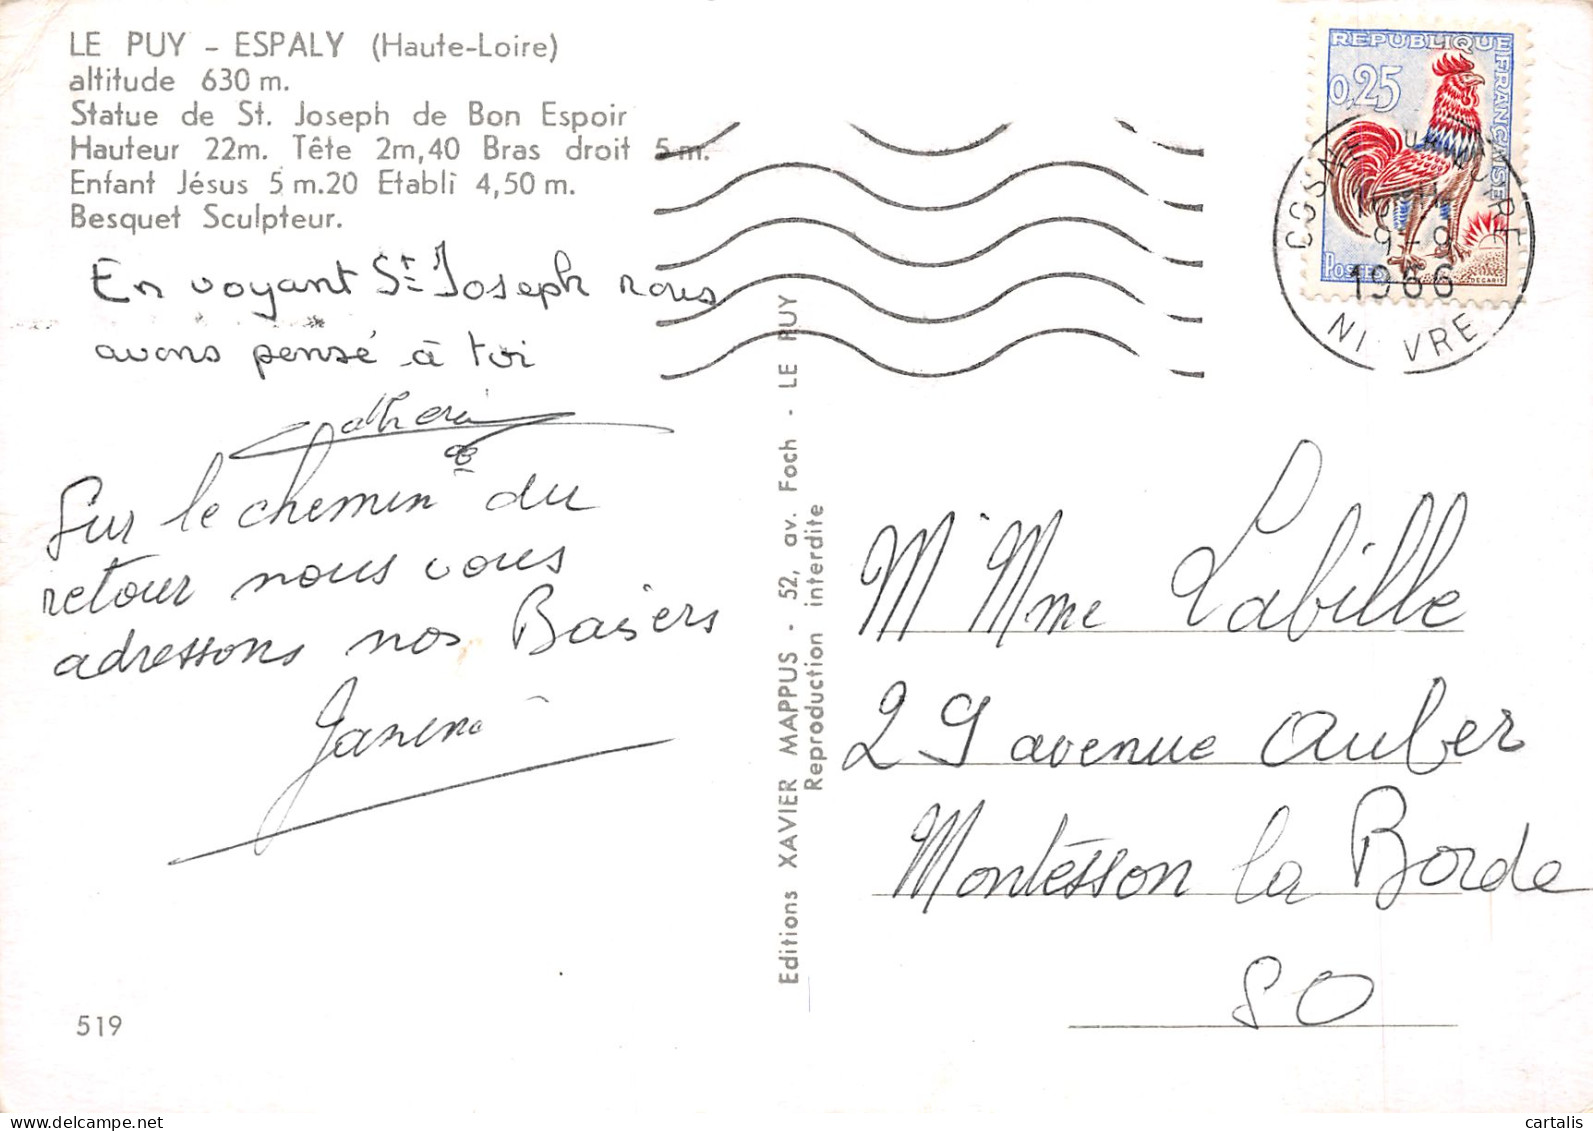 LE PUY - ESPALY (Haute-Loire)
altitude 630 m.
Statue de St. Joseph de Bon Espoir
Hauteur 22m. Tête 2m,40 Bras droit 5 m.
Enfant Jésus 5 m.20 Etabli 4,50 m.
Besquet Sculpteur.
En voyant St Joseph nous
avons pensé à toi
Catherine
Sur le chemin du
retour nous vous
adressons nos Baisers
Janine
519
Editions XAVIER MAPPUS - 52, av. Foch - LE PUY
Reproduction interdite
REPUBLIQUE FRANÇAISE
0,25
POSTES
DECARIS
COSNE SUR LOIRE
9-9
1966
NIEVRE
M Mme Labille
29 avenue Auber
Montésson la Borde
SO
cartalis